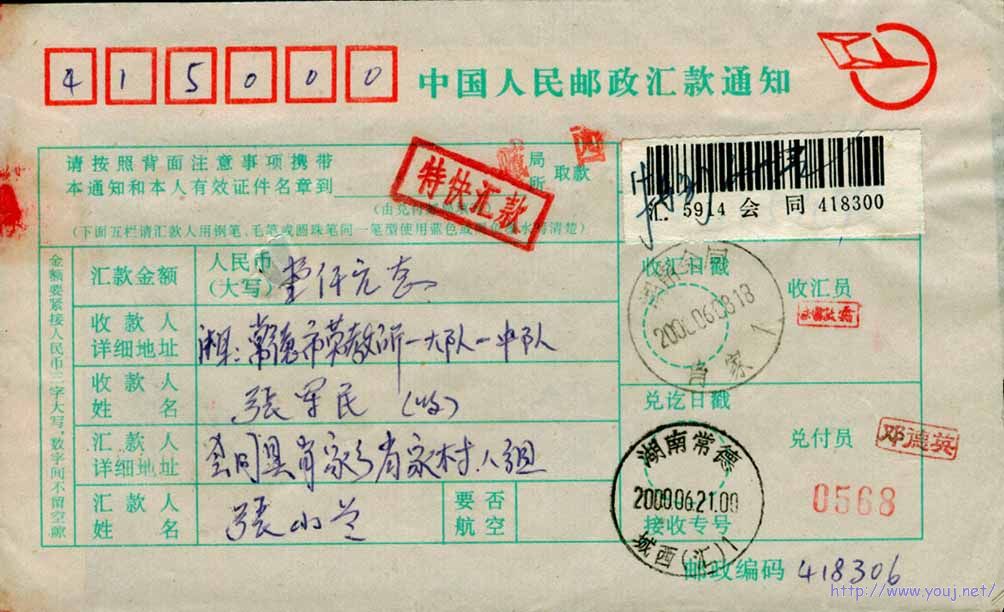 415000
中国人民邮政汇款通知
请按照背面注意事项携带
本通知和本人有效证件名章到
局
所
取款
西
特快汇款
汇 5914 会 同 418300
(下面五栏请汇款人用钢笔、毛笔或圆珠笔同一笔型使用蓝色或
清楚)
金额要紧接人民币三字大写,数字间不留空隙
汇款金额
人民币
(大写)
壹仟元
收款人
详细地址
湘:常德市劳教所一大队一中队
收款人
姓名
張军民(收)
汇款人
详细地址
会同县肖家乡肖家村八组
汇款人
姓名
張小兰
要否
航空
收汇日戳
2000.06.08.18
肖家
1
收汇员
兑讫日戳
湖南常德
2000.06.21.00
城西(汇)1
接收专号
兑付员
邓德英
0568
邮政编码 418306
http://www.youj.net/